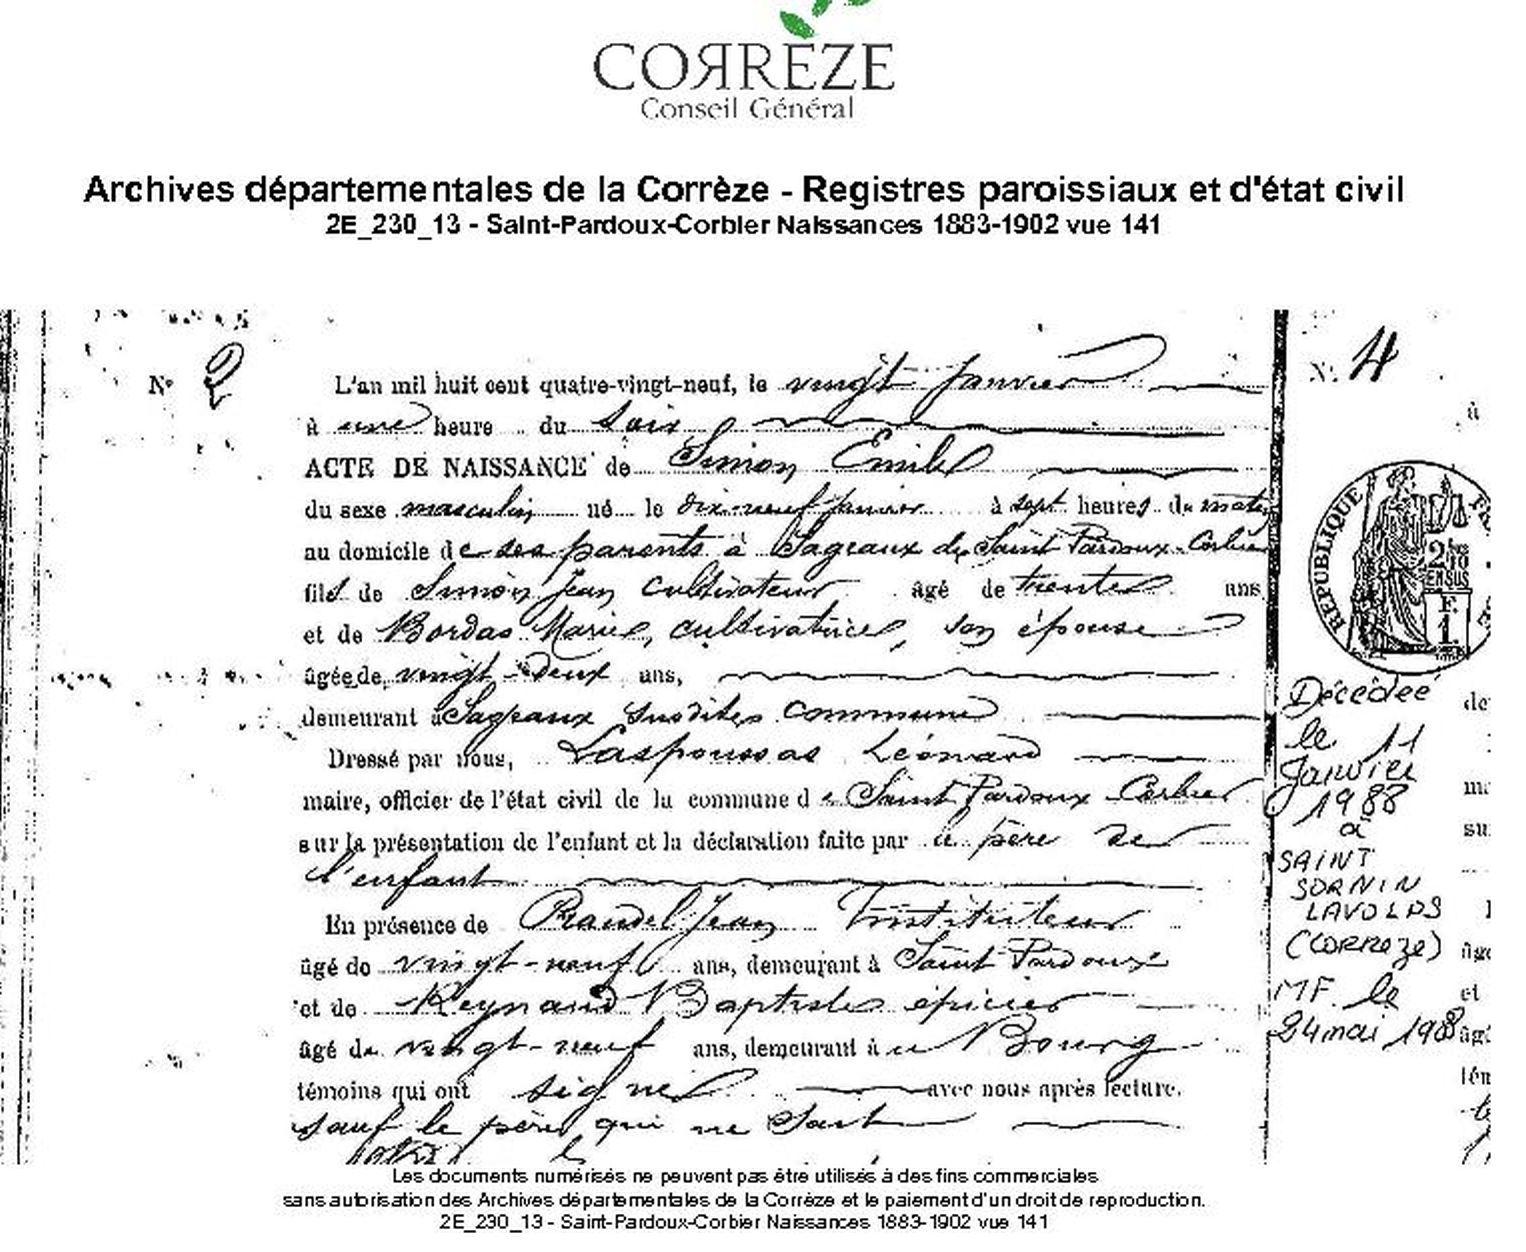 CORRÈZE
Conseil Général
Archives départementales de la Corrèze - Registres paroissiaux et d'état civil
2E_230_13 - Saint-Pardoux-Corbier Naissances 1883-1902 vue 141
N° 2
L'an mil huit cent quatre-vingt-neuf, le vingt Janvier
à une heure du soir
ACTE DE NAISSANCE de Simon Emile
du sexe masculin né le dix-neuf janvier à sept heures du matin
au domicile de ses parents à Sageaux de Saint Pardoux-Corbier
fils de Simon Jean cultivateur âgé de trente ans
et de Bordas Marie, cultivatrice, son épouse
âgée de vingt-deux ans,
demeurant à Sageaux susdite commune
Dressé par nous, Laspoussas Léonard
maire, officier de l'état civil de la commune de Saint Pardoux Corbier
sur la présentation de l'enfant et la déclaration faite par le père de
l'enfant
En présence de Jean Instituteur
âgé de vingt-neuf ans, demeurant à Saint Pardoux
et de Reynaud Baptiste épicier
âgé de vingt-neuf ans, demeurant à u Bourg
témoins qui ont signé avec nous après lecture.
sauf le père qui ne sait
N° 4
à
RÉPUBLIQUE FR
2 10
EN SUS
F.
1.
Décédée
le 11
Janvier
1988
à
SAINT
SORNIN
LAVOLPS
(CORREZE)
MF. le
24 mai 1988
de
ma
su
âgé
et
âgé
tém
Les documents numérisés ne peuvent pas être utilisés à des fins commerciales
sans autorisation des Archives départementales de la Corrèze et le paiement d'un droit de reproduction.
2E_230_13 - Saint-Pardoux-Corbier Naissances 1883-1902 vue 141